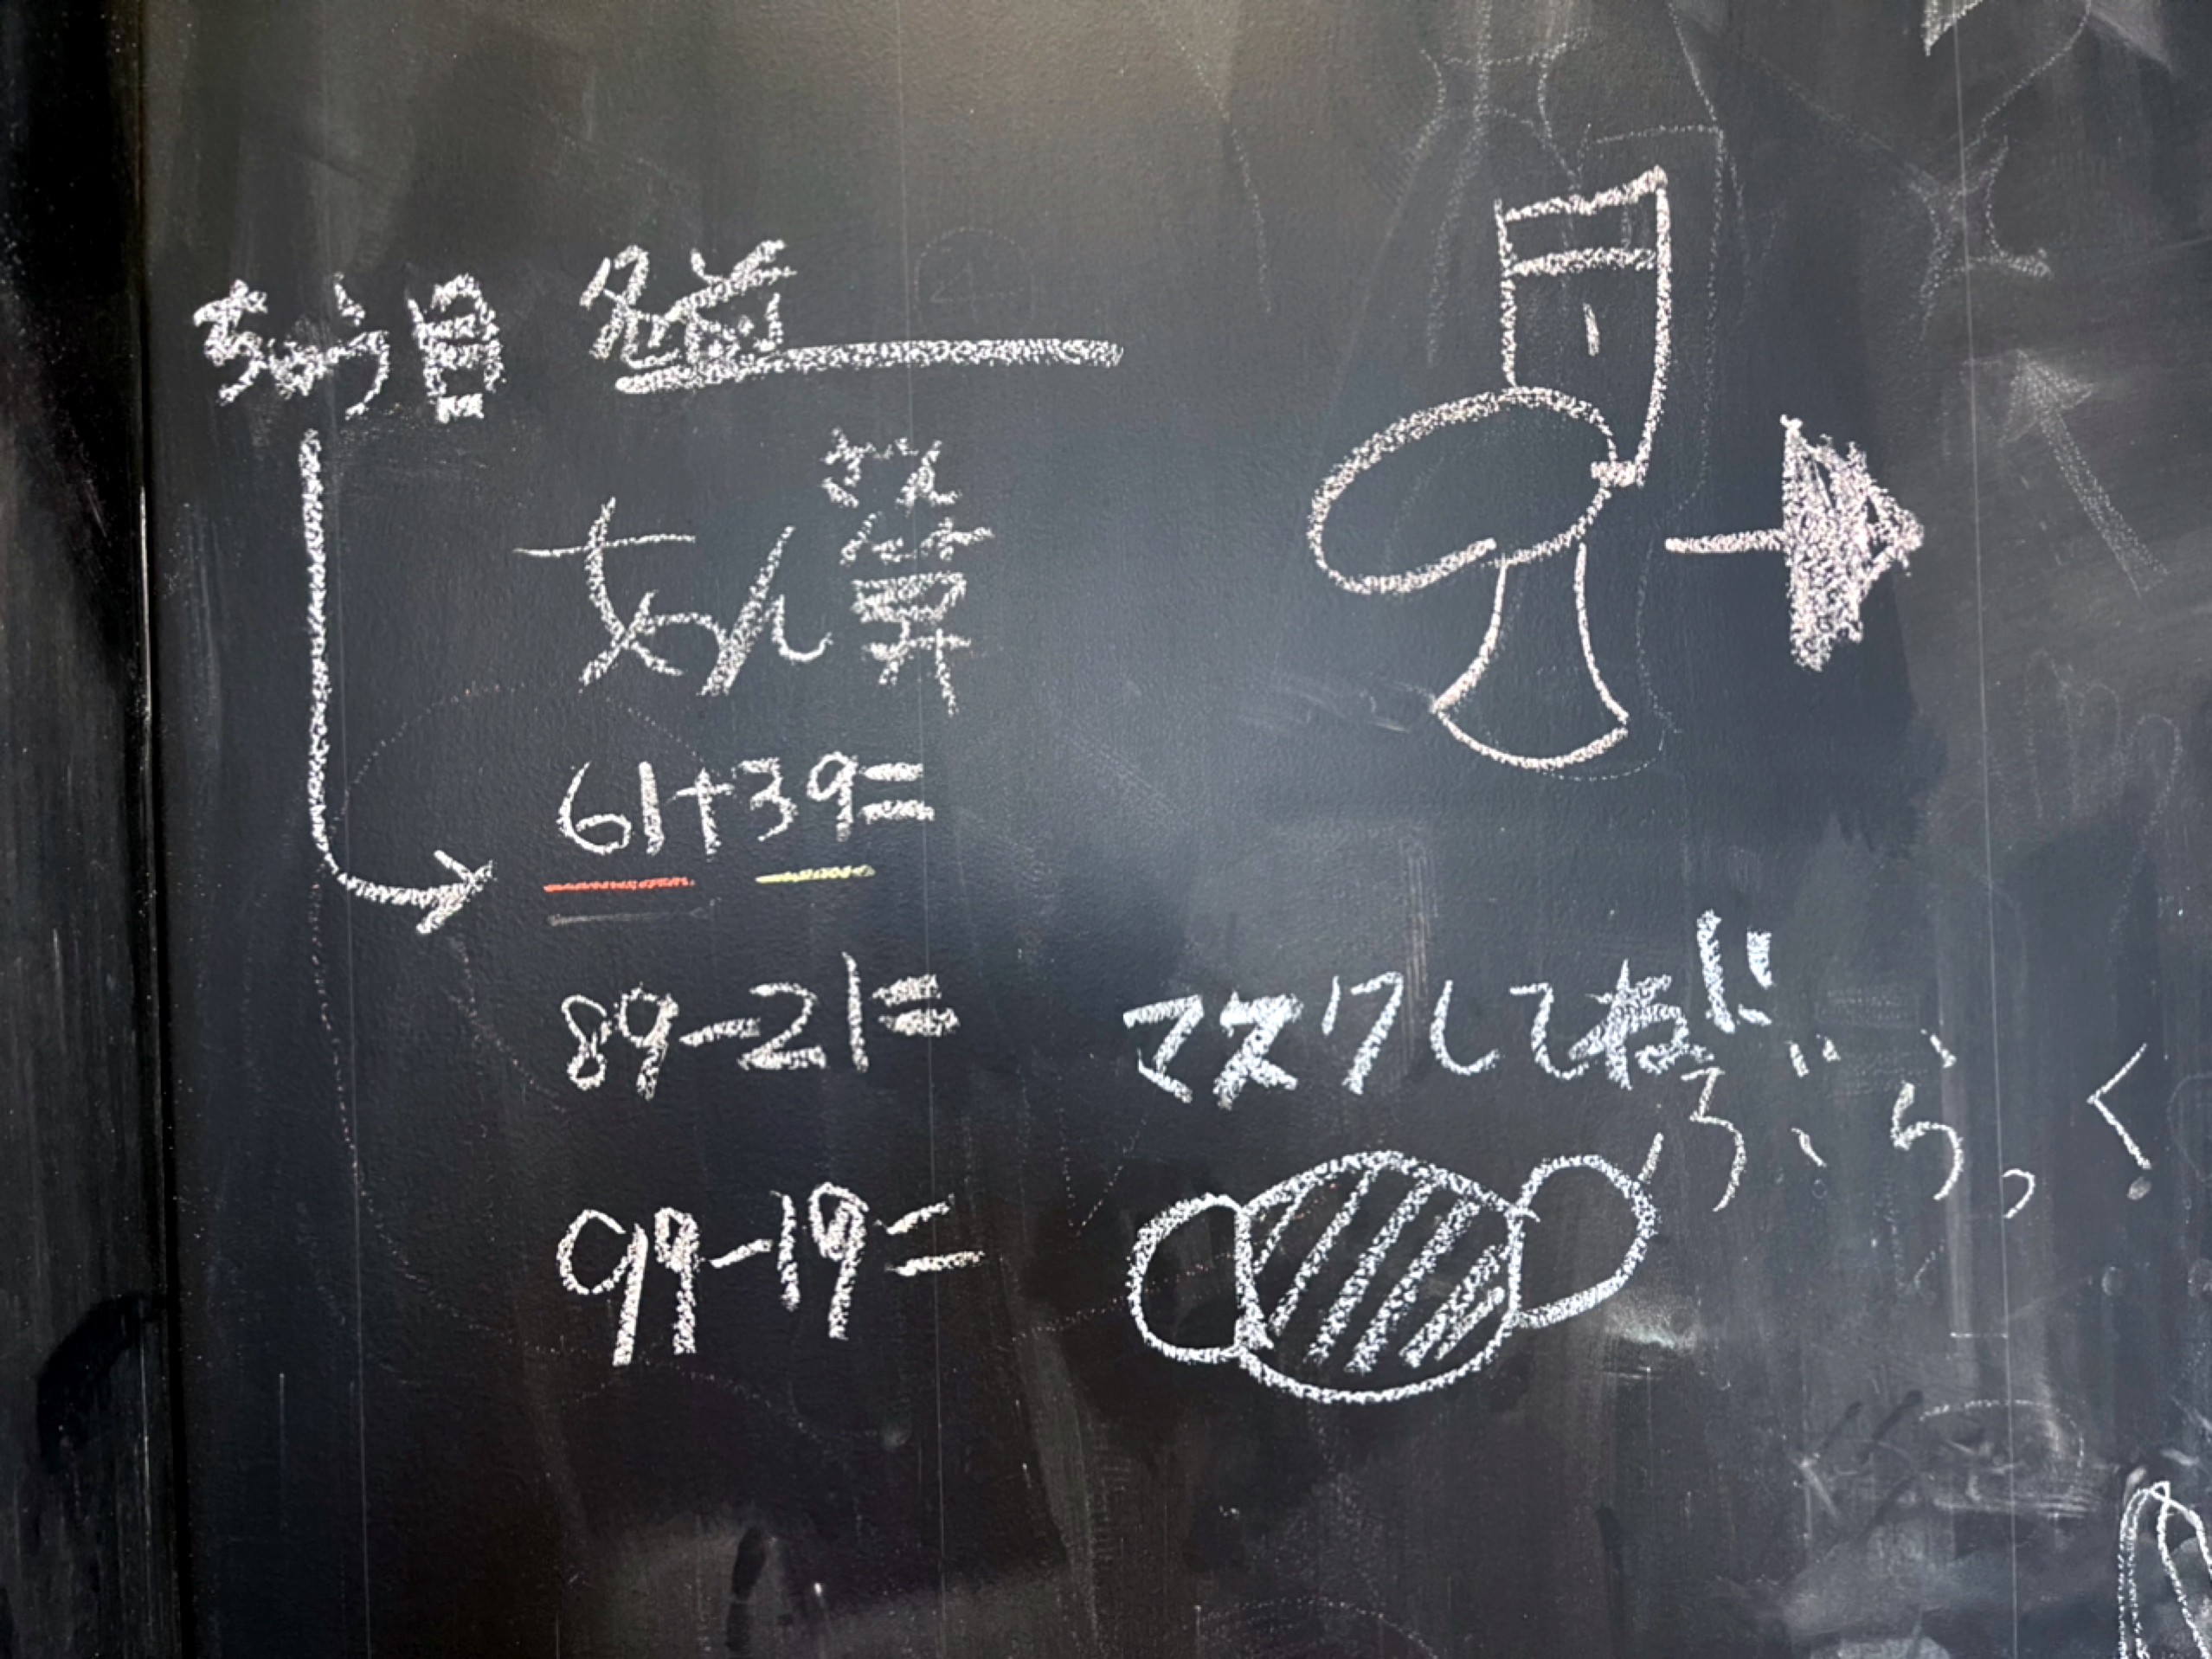 ちゅう目
あん算
61+39=
89-21=
99-19=
マスクしてね!!
ぶらっく